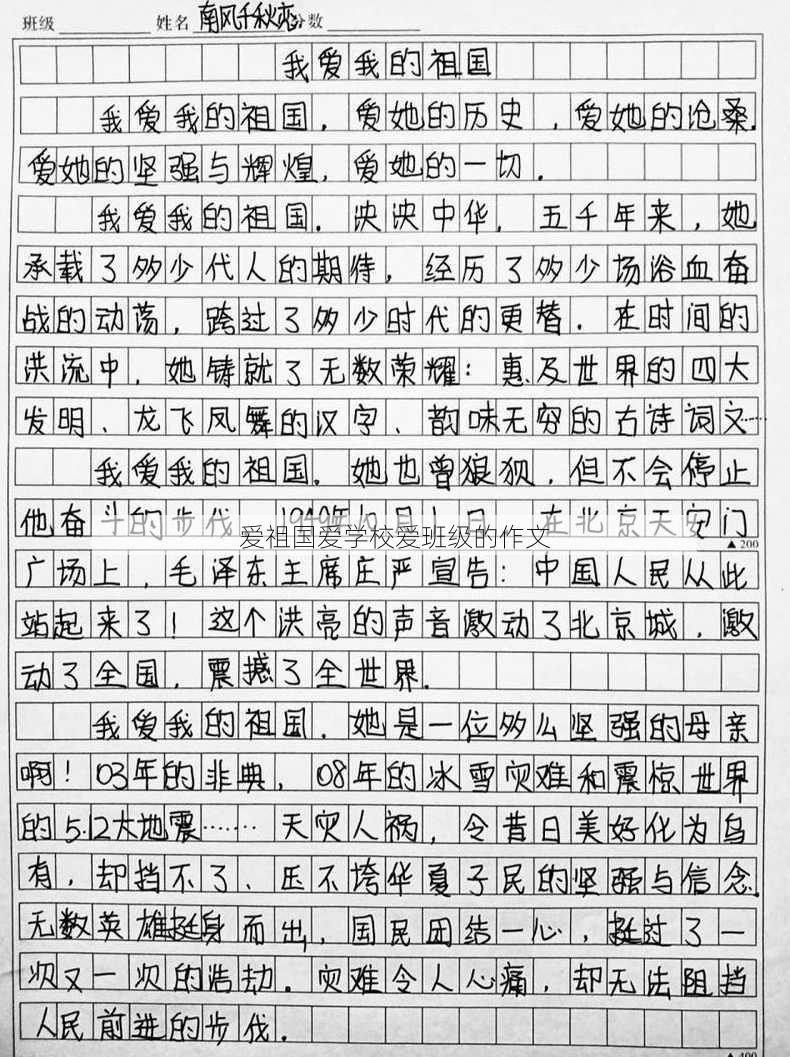 班级 姓名 南风千秋恋 分数
我爱我的祖国
我爱我的祖国，爱她的历史，爱她的沧桑.
爱她的坚强与辉煌，爱她的一切.
我爱我的祖国. 泱泱中华，五千年来，她
承载了多少代人的期待，经历了多少场浴血奋
战的动荡，跨过了多少时代的更替. 在时间的
洪流中，她铸就了无数荣耀：惠及世界的四大
发明、龙飞凤舞的汉字、韵味无穷的古诗词文……
我爱我的祖国. 她也曾狼狈，但不会停止
他奋斗的步伐 1949年10月1日 在北京天安门
爱祖国爱学校爱班级的作文
▲200
广场上，毛泽东主席庄严宣告：中国人民从此
站起来了！这个洪亮的声音激动了北京城，激
动了全国，震撼了全世界.
我爱我的祖国. 她是一位多么坚强的母亲
啊！03年的非典，08年的冰雪灾难和震惊世界
的5.12大地震…… 天灾人祸，令昔日美好化为乌
有，却挡不了、压不垮华夏子民的坚强与信念.
无数英雄挺身而出，国民团结一心，挺过了一
次又一次的浩劫. 灾难令人心痛，却无法阻挡
人民前进的步伐.
▲400